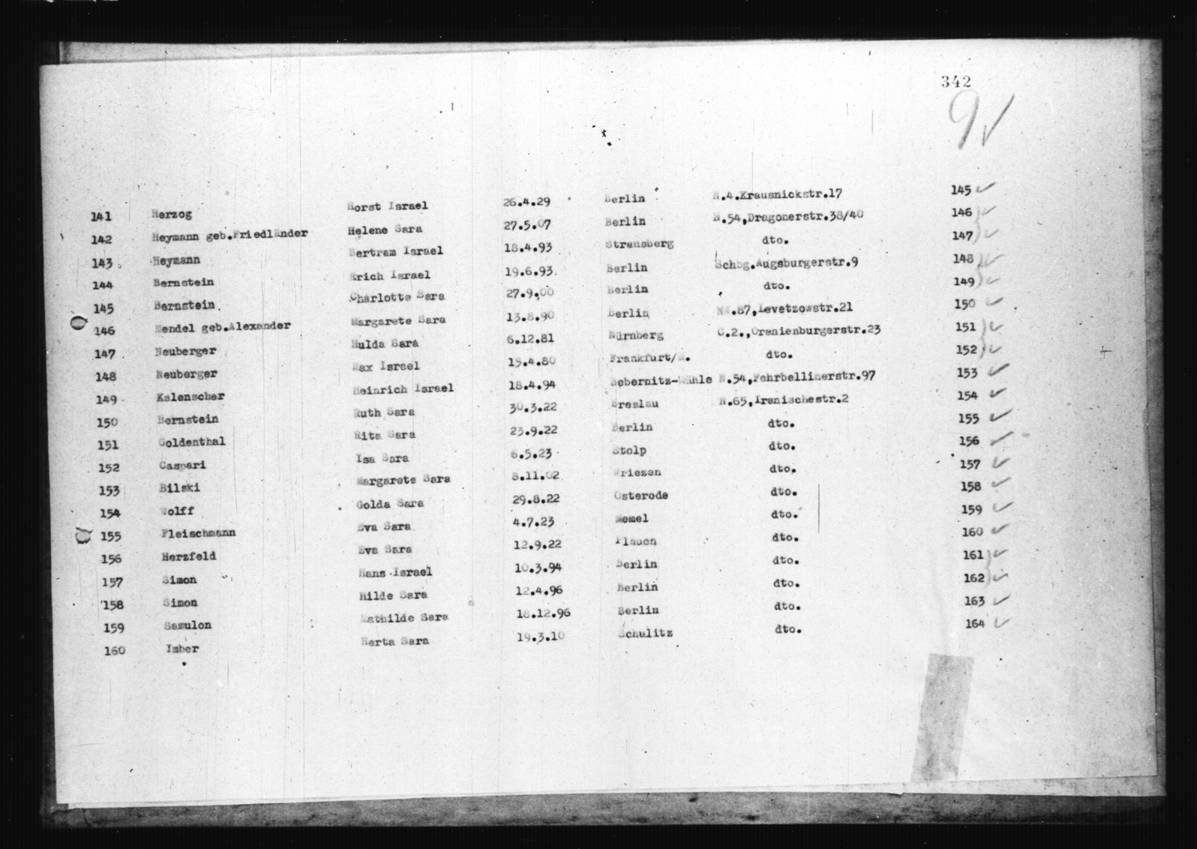 342
9
141 Herzog Horst Israel 26.4.29 Berlin N.4.Krausnickstr.17 145
142 Heymann geb.Friedländer Helene Sara 27.5.07 Berlin N.54,Dragonerstr.38/40 146
143 Heymann Bertram Israel 18.4.93 Strausberg dto. 147
144 Bernstein Erich Israel 19.6.93 Berlin Schbg.Augsburgerstr.9 148
145 Bernstein Charlotte Sara 27.9.00 Berlin dto. 149
146 Mendel geb.Alexander Margarete Sara 13.8.90 Berlin NW.87,Levetzowstr.21 150
147 Neuberger Hulda Sara 6.12.81 Nürnberg C.2.,Oranienburgerstr.23 151
148 Neuberger Max Israel 15.4.80 Frankfurt/M. dto. 152
149 Kalenscher Heinrich Israel 18.4.94 Bebernitz-Mühle N.54,Fehrbellinerstr.97 153
150 Bernstein Ruth Sara 30.3.22 Breslau N.65,Iranischestr.2 154
151 Goldenthal Rita Sara 23.9.22 Berlin dto. 155
152 Caspari Isa Sara 6.5.23 Stolp dto. 156
153 Bilski Margarete Sara 8.11.02 Wriezen dto. 157
154 Wolff Golda Sara 29.8.22 Osterode dto. 158
155 Fleischmann Eva Sara 4.7.23 Memel dto. 159
156 Herzfeld Eva Sara 12.9.22 Plauen dto. 160
157 Simon Hans Israel 10.3.94 Berlin dto. 161
158 Simon Hilde Sara 12.4.96 Berlin dto. 162
159 Samulon Mathilde Sara 18.12.96 Berlin dto. 163
160 Imber Berta Sara 19.3.10 Schulitz dto. 164